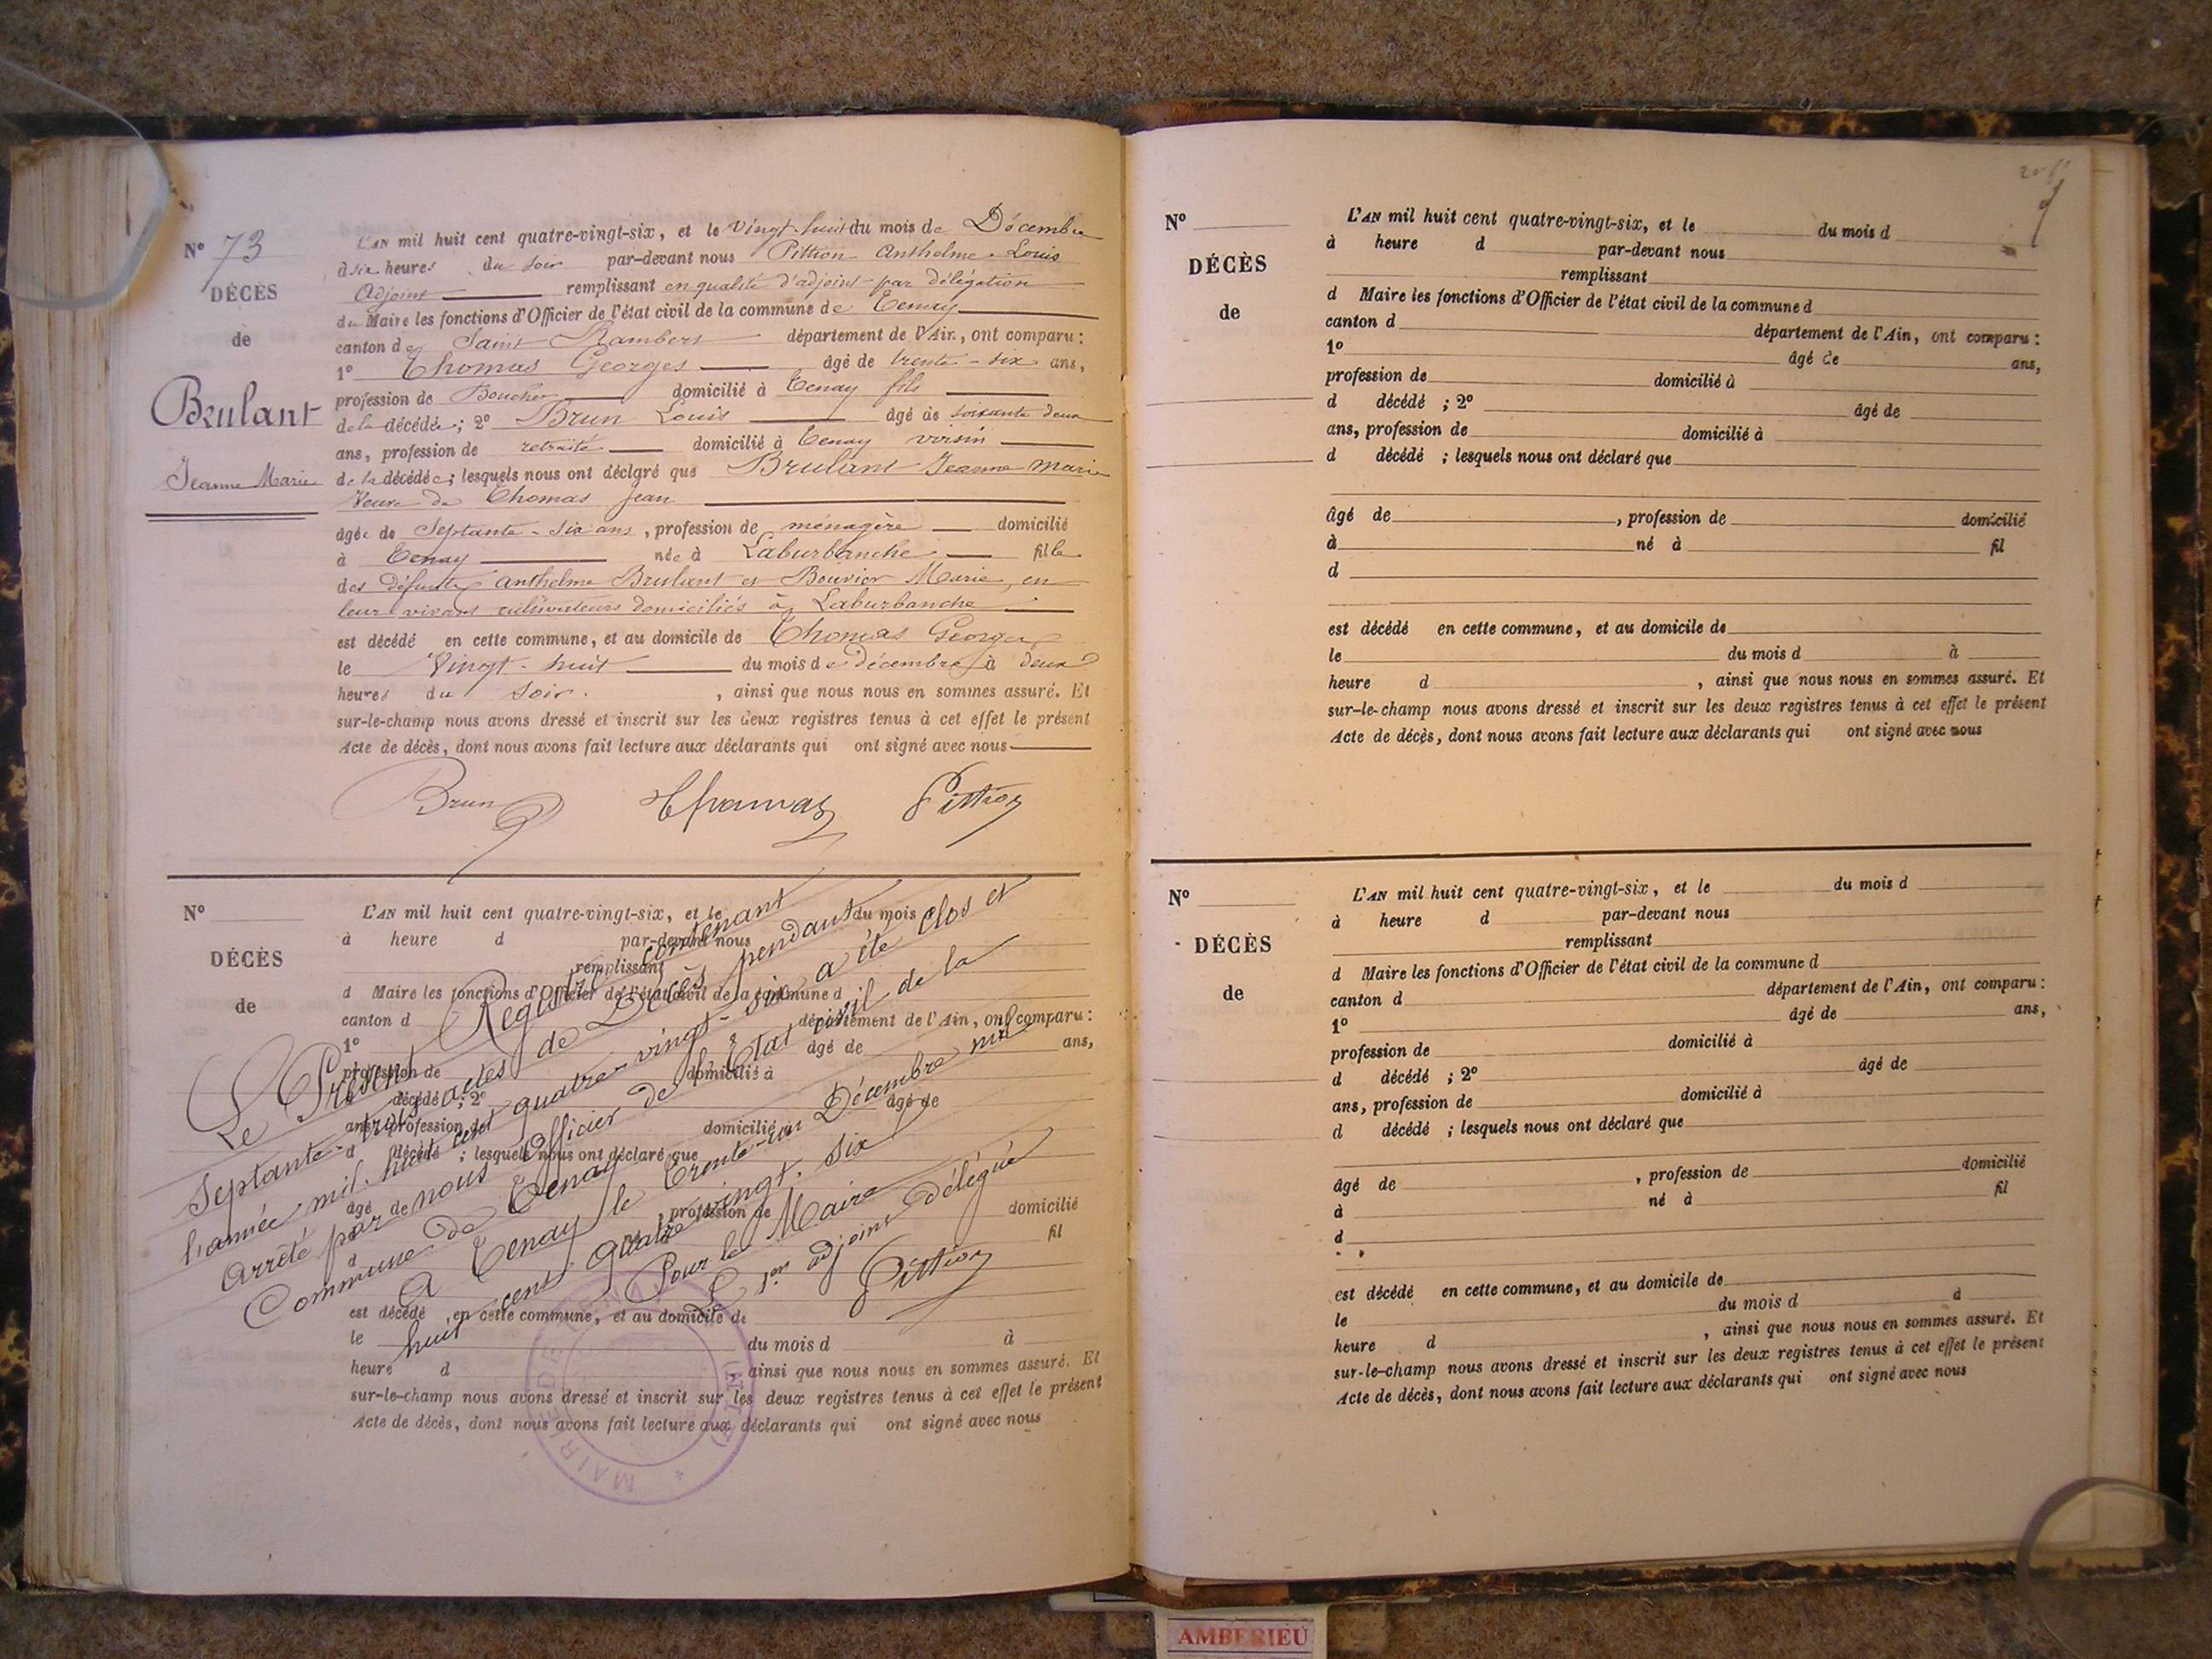 N° 73
DÉCÈS
de
Brulant
Jeanne Marie
L'AN mil huit cent quatre-vingt-six, et le vingt-huit du mois de Décembre
à six heures du soir par-devant nous Pittion Anthelme Louis
Adjoint remplissant en qualité d'adjoint par délégation
du Maire les fonctions d'Officier de l'état civil de la commune de Tenay
canton de Saint Rambert département de l'Ain, ont comparu :
1° Thomas Georges âgé de trente-six ans,
profession de Boucher domicilié à Tenay fils
de la décédée ; 2° Brun Louis âgé de soixante deux
ans, profession de retraité domicilié à Tenay voisin
de la décédée ; lesquels nous ont déclaré que Brulant Jeanne Marie
Veuve de Thomas Jean
âgée de Septante-six ans, profession de ménagère domicilié
à Tenay née à Laburbanche fille
des défunts Anthelme Brulant et Bouvier Marie, en
leur vivant cultivateurs domiciliés à Laburbanche
est décédé en cette commune, et au domicile de Thomas Georges
le Vingt-huit du mois de décembre à deux
heures du soir. , ainsi que nous nous en sommes assuré. Et
sur-le-champ nous avons dressé et inscrit sur les deux registres tenus à cet effet le présent
Acte de décès, dont nous avons fait lecture aux déclarants qui ont signé avec nous
Brun Thomas Pittion
N°
DÉCÈS
de
L'AN mil huit cent quatre-vingt-six, et le du mois
à heure d par-devant nous
remplissant
d Maire les fonctions d'Officier de l'état civil de la commune d
canton d département de l'Ain, ont comparu :
1° âgé de ans,
profession de domicilié à
d décédé ; 2° âgé de
ans, profession de domicilié à
d décédé ; lesquels nous ont déclaré que
âgé de , profession de domicilié
fil
d
est décédé en cette commune, et au domicile de
le du mois d à
heure d ainsi que nous nous en sommes assuré. Et
sur-le-champ nous avons dressé et inscrit sur les deux registres tenus à cet effet le présent
Acte de décès, dont nous avons fait lecture aux déclarants qui ont signé avec nous
Le Présent Registre contenant
Septante-trois actes de Décès pendant
l'année mil-huit cent quatre-vingt-six a été clos et
arrêté par nous Officier de l'Etat civil de la
Commune de Tenay
A Tenay le Trente-un Décembre mil
huit cent quatre vingt-six
Pour le Maire
L 1er adjoint délégué
Pittion
MAIRIE DE TENAY (AIN)
N°
DÉCÈS
de
L'AN mil huit cent quatre-vingt-six, et le du mois d
à heure d par-devant nous
remplissant
d Maire les fonctions d'Officier de l'état civil de la commune d
canton d département de l'Ain, ont comparu :
1° âgé de ans,
profession de domicilié à
d décédé ; 2° âgé de
ans, profession de domicilié à
d décédé ; lesquels nous ont déclaré que
âgé de , profession de domicilié
à né à fil
d
est décédé en cette commune, et au domicile de
le du mois d à
heure d , ainsi que nous nous en sommes assuré. Et
sur-le-champ nous avons dressé et inscrit sur les deux registres tenus à cet effet le présent
Acte de décès, dont nous avons fait lecture aux déclarants qui ont signé avec nous
N°
DÉCÈS
de
L'AN mil huit cent quatre-vingt-six, et le du mois d
à heure d par-devant nous
remplissant
d Maire les fonctions d'Officier de l'état civil de la commune d
canton d département de l'Ain, ont comparu :
1° âgé de ans,
profession de domicilié à
d décédé ; 2° âgé de
ans, profession de domicilié à
d décédé ; lesquels nous ont déclaré que
âgé de , profession de domicilié
à né à fil
d
est décédé en cette commune, et au domicile de
le du mois d à
heure d , ainsi que nous nous en sommes assuré. Et
sur-le-champ nous avons dressé et inscrit sur les deux registres tenus à cet effet le présent
Acte de décès, dont nous avons fait lecture aux déclarants qui ont signé avec nous
AMBERIEU